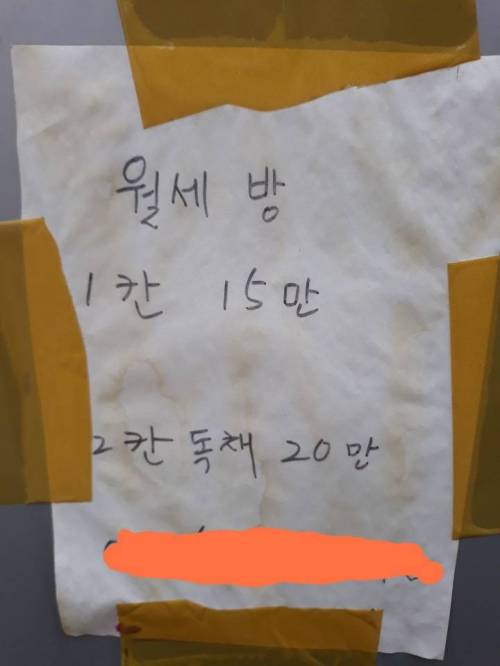 월세 방
1칸 15만
2칸 독채 20만